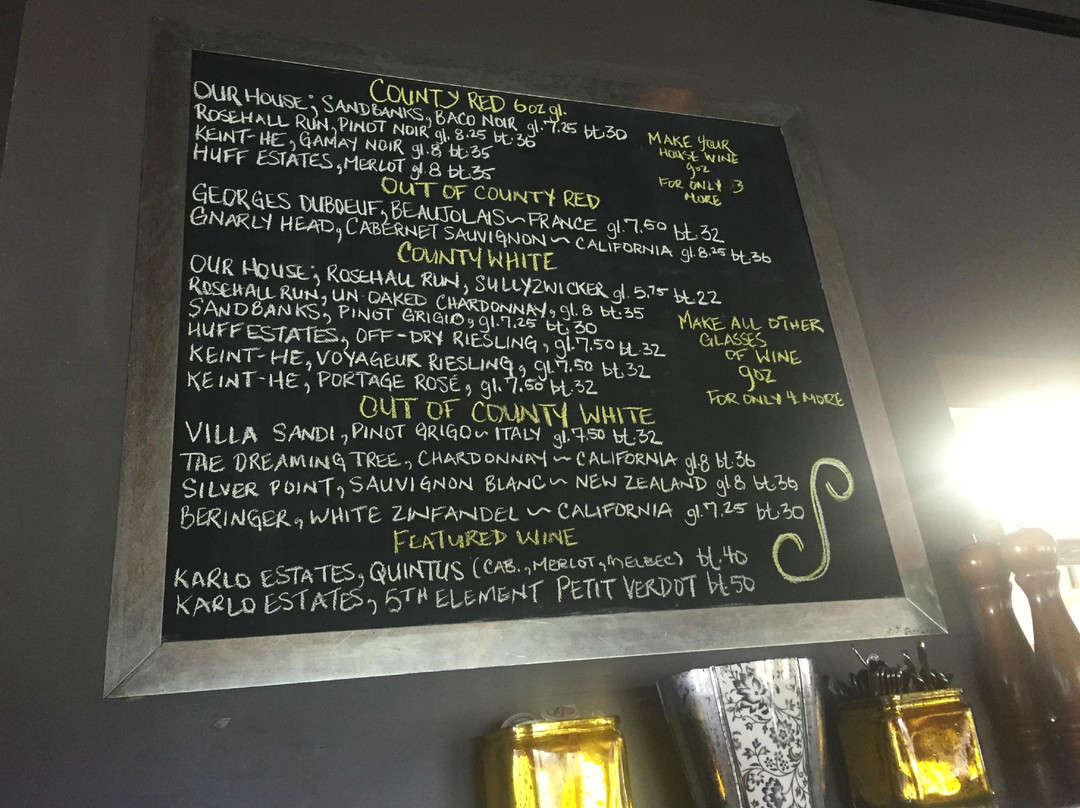 COUNTY RED 6oz gl.
OUR HOUSE; SANDBANKS, BACO NOIR gl.7.25 bt.30
ROSEHALL RUN, PINOT NOIR gl. 8.25 bt.36
KEINT-HE, GAMAY NOIR gl.8 bt.35
HUFF ESTATES, MERLOT gl.8 bt.35
MAKE YOUR
HOUSE WINE
9oz
FOR ONLY 3
MORE
OUT OF COUNTY RED
GEORGES DUBOEUF, BEAUJOLAIS~FRANCE gl.7.50 bt.32
GNARLY HEAD, CABERNET SAUVIGNON~CALIFORNIA gl.8.25 bt.36
COUNTY WHITE
OUR HOUSE; ROSEHALL RUN, SULLYZWICKER gl. 5.75 bt.22
ROSEHALL RUN, UN-OAKED CHARDONNAY, gl.8 bt.35
SANDBANKS, PINOT GRIGIO, gl.7.25 bt.30
HUFF ESTATES, OFF-DRY RIESLING, gl.7.50 bt.32
KEINT-HE, VOYAGEUR RIESLING, gl.7.50 bt.32
KEINT-HE, PORTAGE ROSÉ, gl.7.50 bt.32
MAKE ALL OTHER
GLASSES
OF WINE
9oz
FOR ONLY 4 MORE
OUT OF COUNTY WHITE
VILLA SANDI, PINOT GRIGO~ITALY gl.7.50 bt.32
THE DREAMING TREE, CHARDONNAY~CALIFORNIA gl.8 bt.36
SILVER POINT, SAUVIGNON BLANC~NEW ZEALAND gl8 bt.36
BERINGER, WHITE ZINFANDEL~CALIFORNIA gl.7.25 bt.30
FEATURED WINE
KARLO ESTATES, QUINTUS (CAB., MERLOT, MELBEC) bt.40
KARLO ESTATES, 5TH ELEMENT PETIT VERDOT bt.50